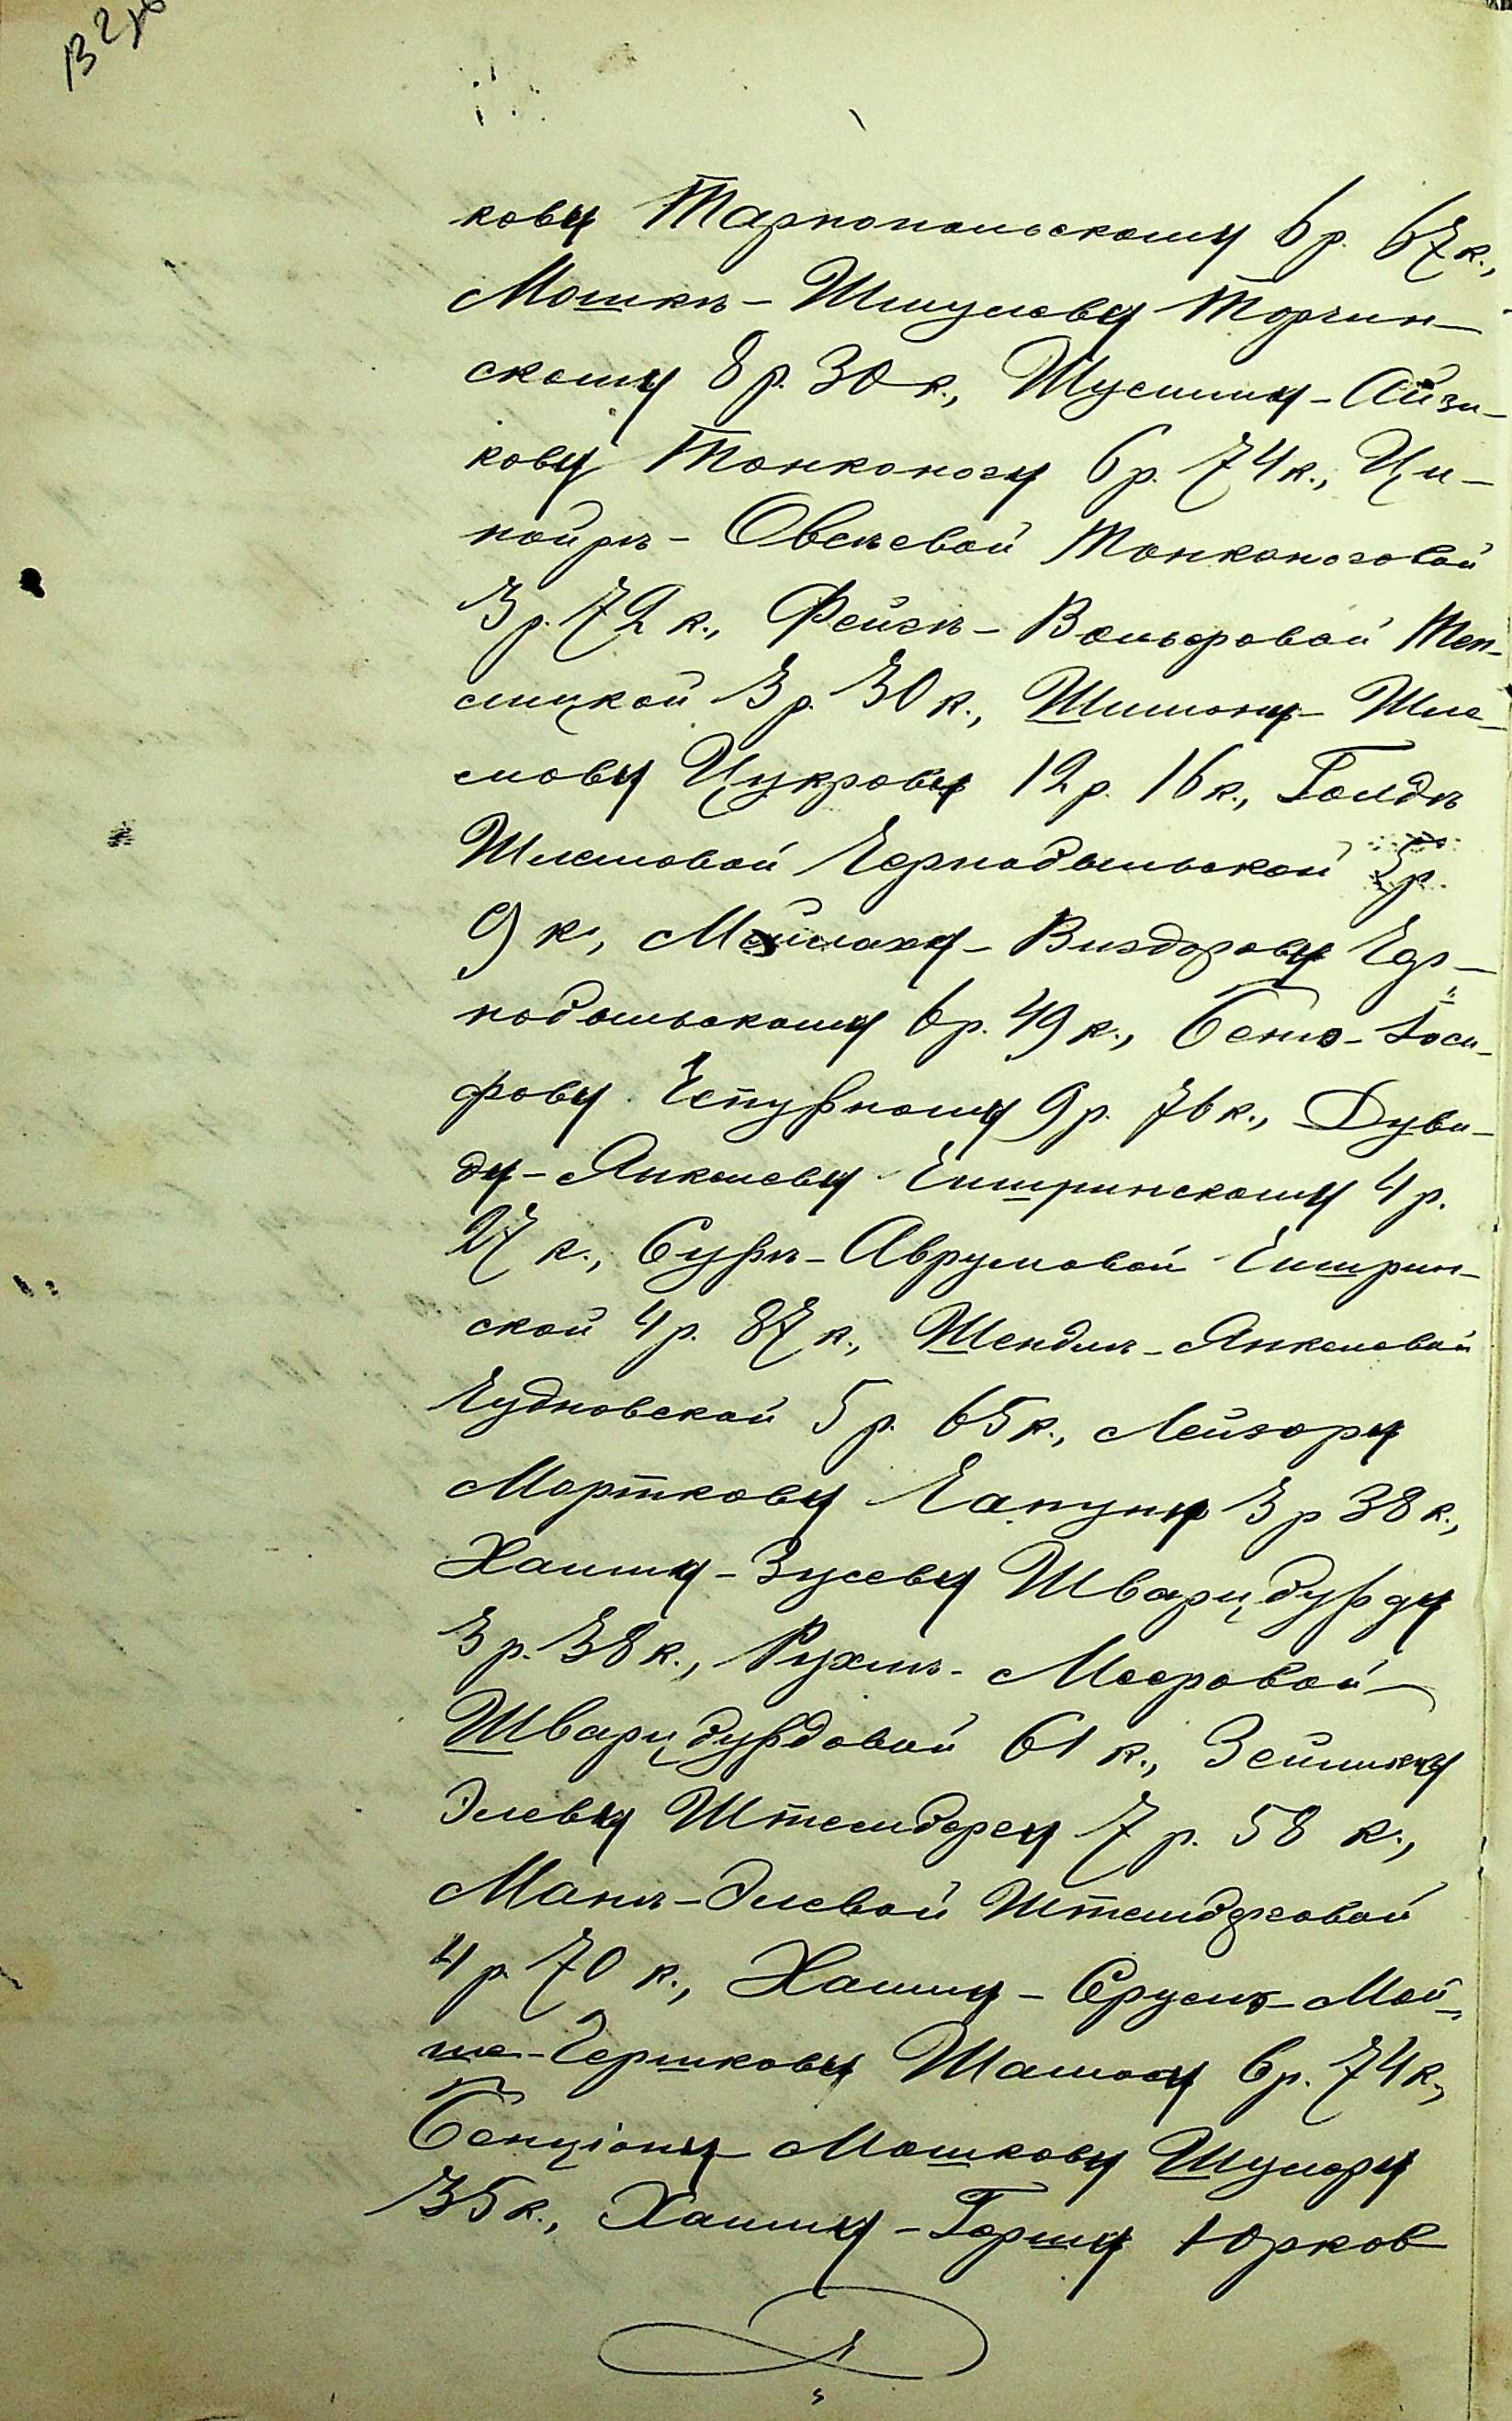 кову Тарнопольскому 6 р. 67 к.,
Мошкѣ-Шмулеву Торчин-
скому 8 р. 30 к., Шулиму-Айзи-
кову Тонконогу 6 р. 74 к., Ци-
пойрѣ-Овсѣевой Тонконоговой
3 р. 72 к., Фейгѣ-Вольфовой Теп-
лицкой 3 р. 30 к., Шимону-Шле-
мову Цукрову 12 р. 16 к., Голдѣ
Шлемовой Чернобыльской 3 р.
9 к., Мойшаху-Виздорову Чер-
нобыльскому 6 р. 49 к., Беню-Іоси-
фову Чепурному 9 р. 76 к., Дуви-
ду-Янкелеву Чишринскому 4 р.
27 к., Сурѣ-Аврумовой Чишрин-
ской 4 р. 87 к., Шендлѣ-Янкелевой
Чудновской 5 р. 65 к., Лейзору
Морткову Чапуну 3 р 38 к.,
Хаиму-Зусеву Шварцбурду
3 р. 38 к., Рухлѣ-Мееровой
Шварцбурдовой 61 к., Зейлику
Элеву Штельбергу 7 р. 58 к.,
Манѣ-Элевой Штельберговой
4 р. 70 к., Хаиму-Сруль-Мой-
ше-Гершкову Шамесу 6 р. 74 к.,
Бенціону Мошкову Шулеру
35 к., Хаиму-Гершу Юрков